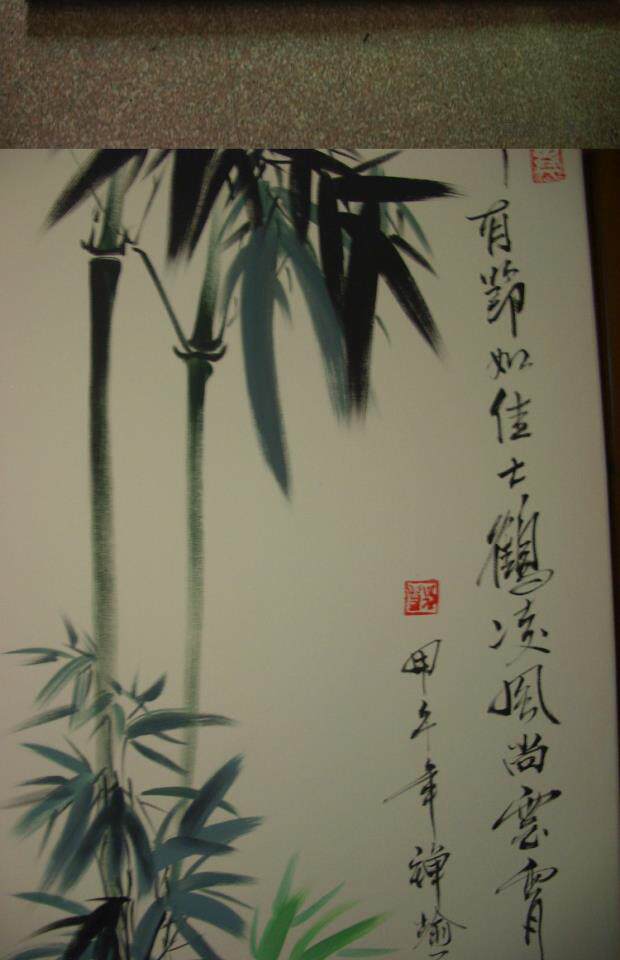 有節如佳士鶴凌風尚雲霄
甲午年禪